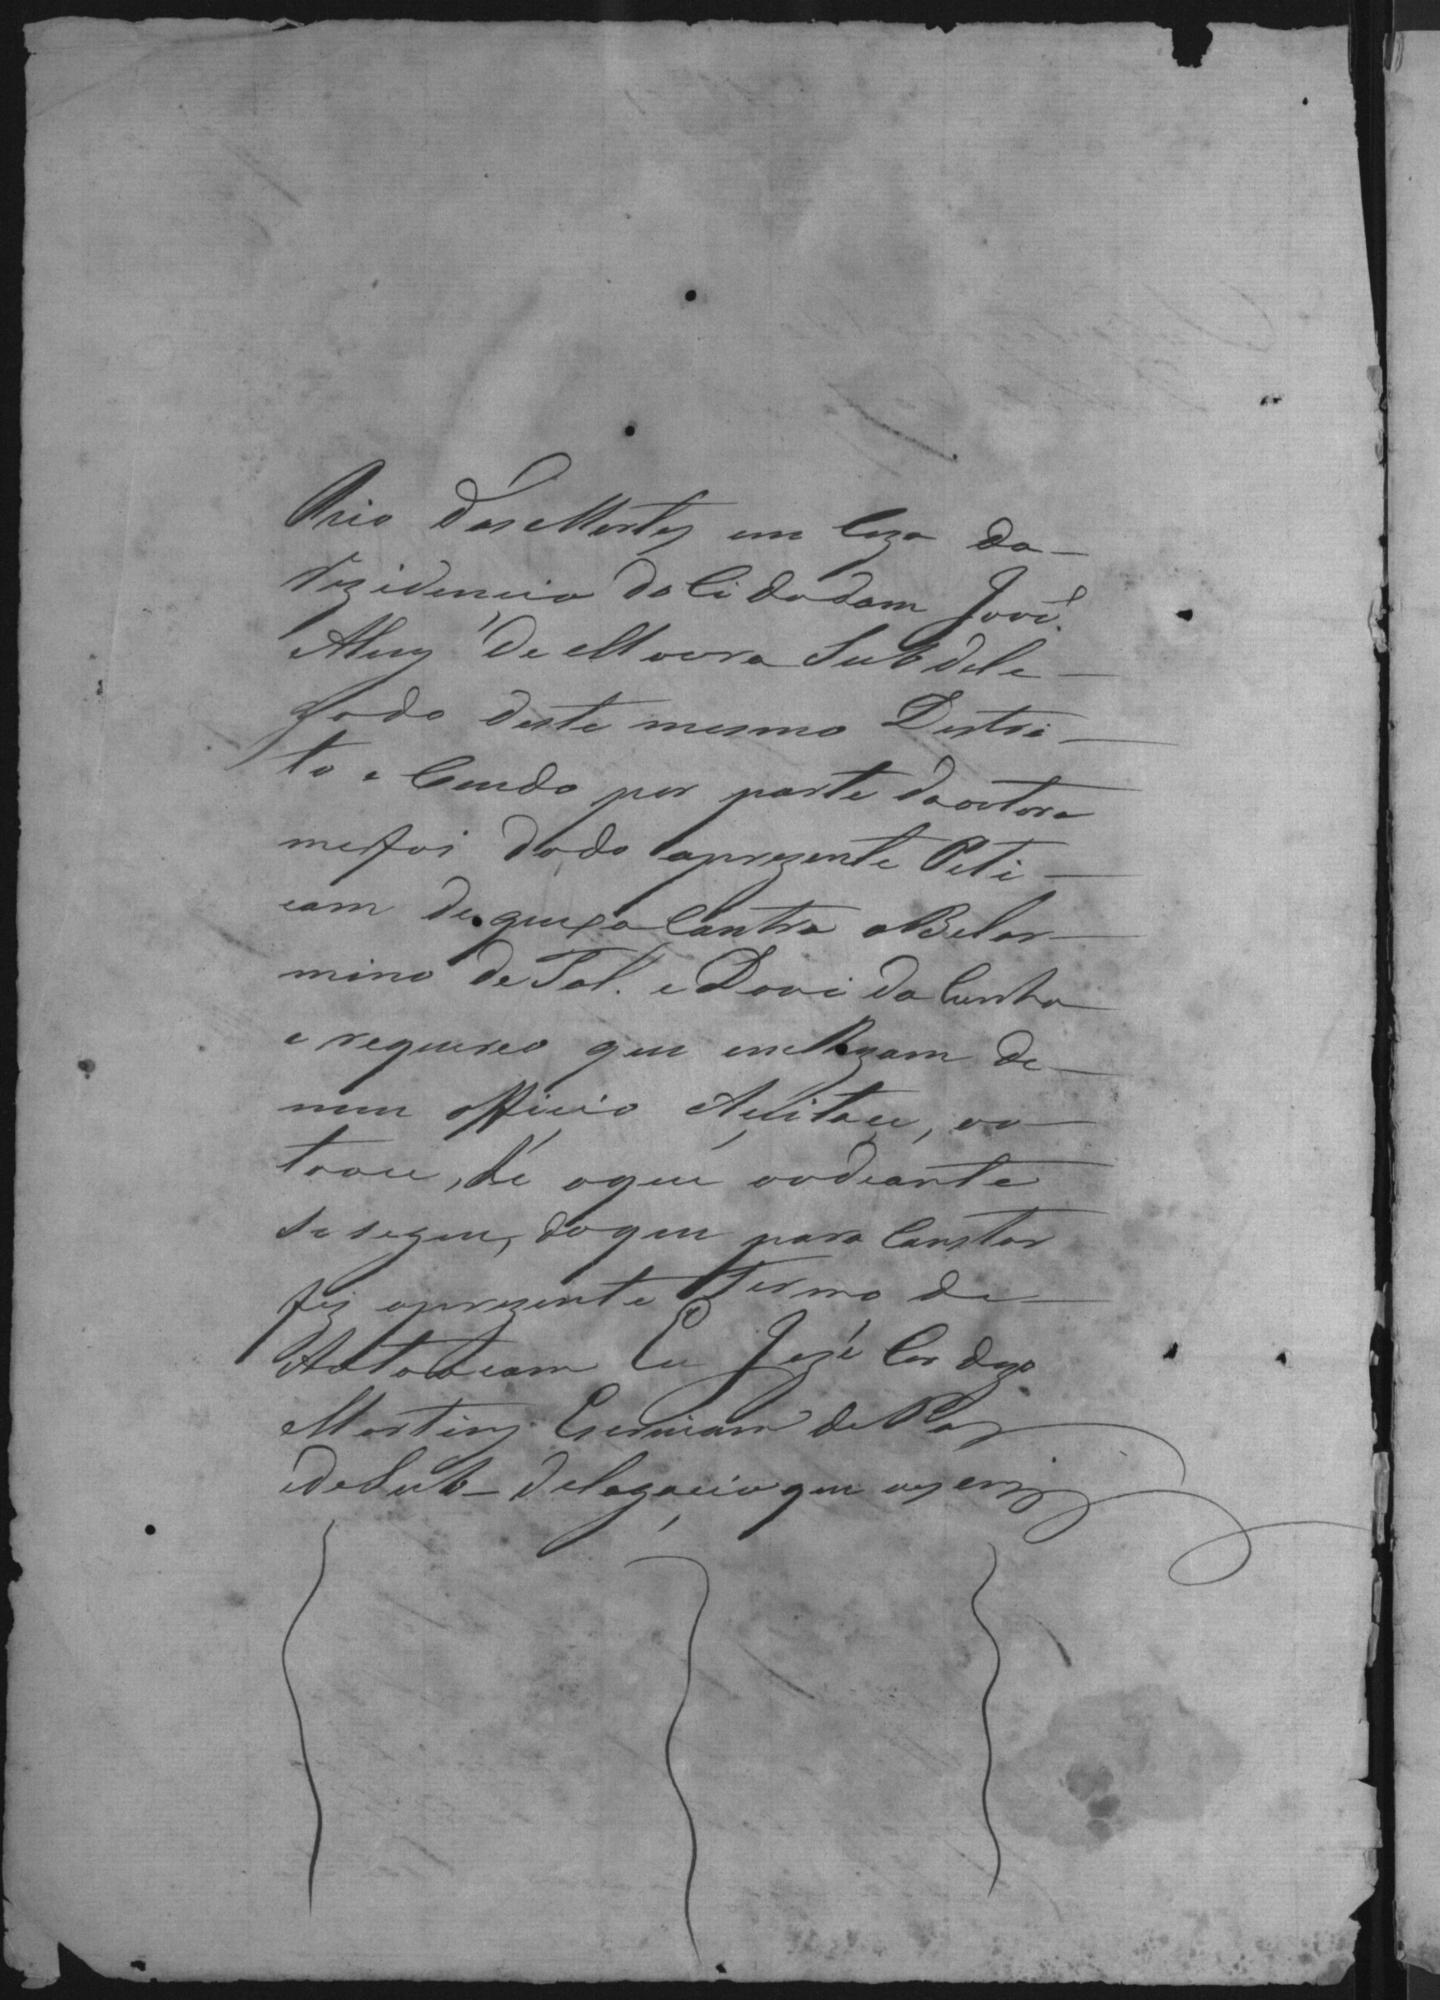 Rio das Mortes em Caza da
rezidencia do Cidadam José
Alves de Moura Subdele-
gado deste mesmo Destri-
to e Cendo por parte da autora
me foi dado aprezente Peti-
cam de queixa Contra a Belar-
mino de Tal. e Davi da Cunha
e requereo que em Razam de
meu officio Aceitace, au-
tuace, dé oque aodeante
se segue, do que para Constar
fez aprezente Termo de
Autoacam Eu José Cardozo
Martins Escrivam de Paz
e de Sub-delegacia que oescrevi